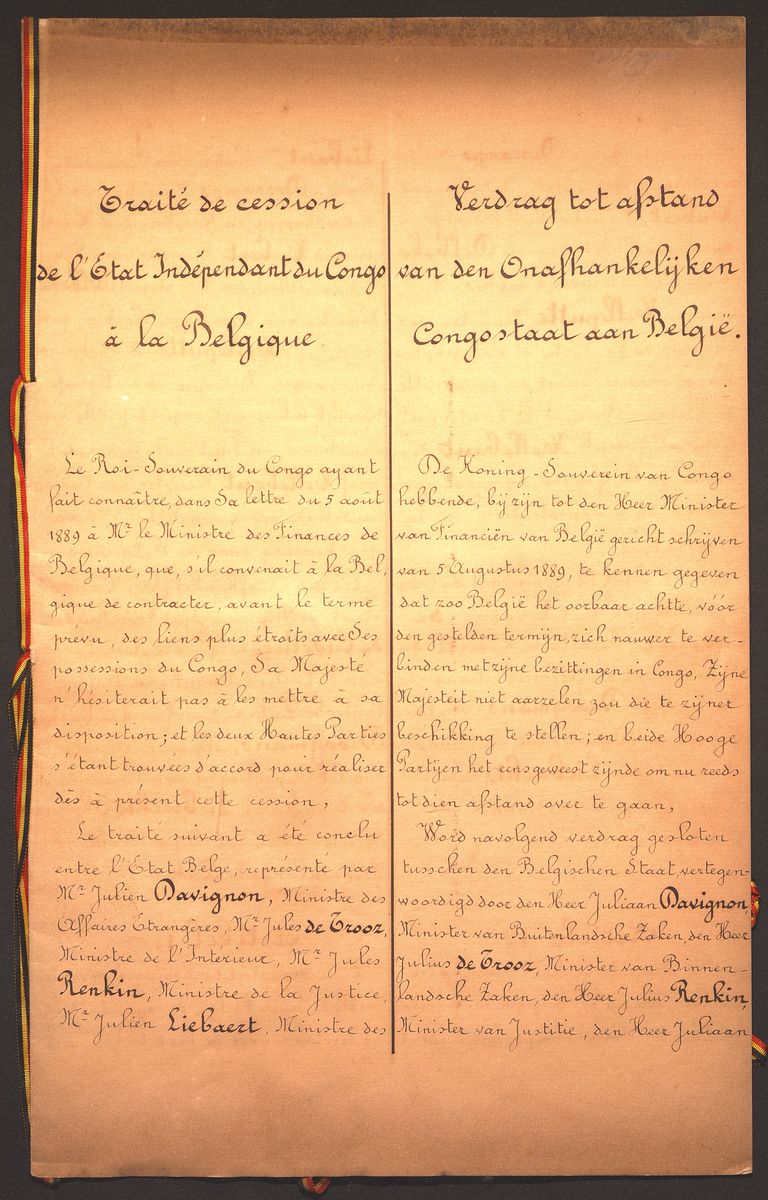 Traité de cession
de l'État Indépendant du Congo
à la Belgique
Le Roi-Souverain du Congo ayant
fait connaître, dans Sa lettre du 5 août
1889 à Mr le Ministre des Finances de
Belgique, que, s'il convenait à la Bel,
gique de contracter, avant le terme
prévu, des liens plus étroits avec Ses
possessions du Congo, Sa Majesté
n'hésiterait pas à les mettre à sa
disposition; et les deux Hautes Parties
s'étant trouvées d'accord pour réaliser
dès à présent cette cession,
Le traité suivant a été conclu
entre l'État Belge, représenté par
Mr Julien Davignon, Ministre des
Affaires Étrangères, Mr Jules de Trooz,
Ministre de l'Intérieur, Mr Jules
Renkin, Ministre de la Justice,
Mr Julien Liebaert, Ministre des
Verdrag tot afstand
van den Onafhankelijken
Congostaat aan België.
De Koning-Souverein van Congo
hebbende, bij zijn tot den Heer Minister
van Financiën van België gericht schrijven
van 5 Augustus 1889, te kennen gegeven
dat zoo België het oorbaar achtte, vóór
den gestelden termijn, zich nauwer te ver-
binden met zijne bezittingen in Congo, Zijne
Majesteit niet aarzelen zou die te zijner
beschikking te stellen; en beide Hooge
Partijen het eens geweest zijnde om nu reeds
tot dien afstand over te gaan,
Word navolgend verdrag gesloten
tusschen den Belgischen Staat, vertegen-
woordigd door den Heer Juliaan Davignon
Minister van Buitenlandsche Zaken, den Heer
Julius de Trooz, Minister van Binnen-
landsche Zaken, den Heer Julius Renkin,
Minister van Justitie, den Heer Juliaan